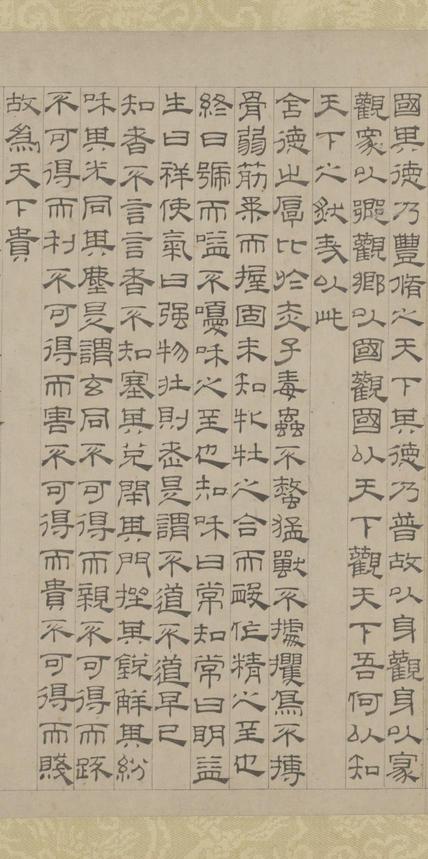 國其德乃豐脩之天下其德乃普故以身觀身以家
觀家以鄉觀鄉以國觀國以天下觀天下吾何以知
天下之然哉以此
含德之厚比於赤子毒蟲不螫猛獸不據攫鳥不搏
骨弱筋柔而握固未知牝牡之合而作精之至也
終日號而嗌不嚘和之至也知和曰常知常曰明益
生曰祥使氣曰强物壯則老是謂不道不道早已
知者不言言者不知塞其兌閉其門挫其銳解其紛
和其光同其塵是謂玄同不可得而親不可得而踈
不可得而利不可得而害不可得而貴不可得而賤
故為天下貴